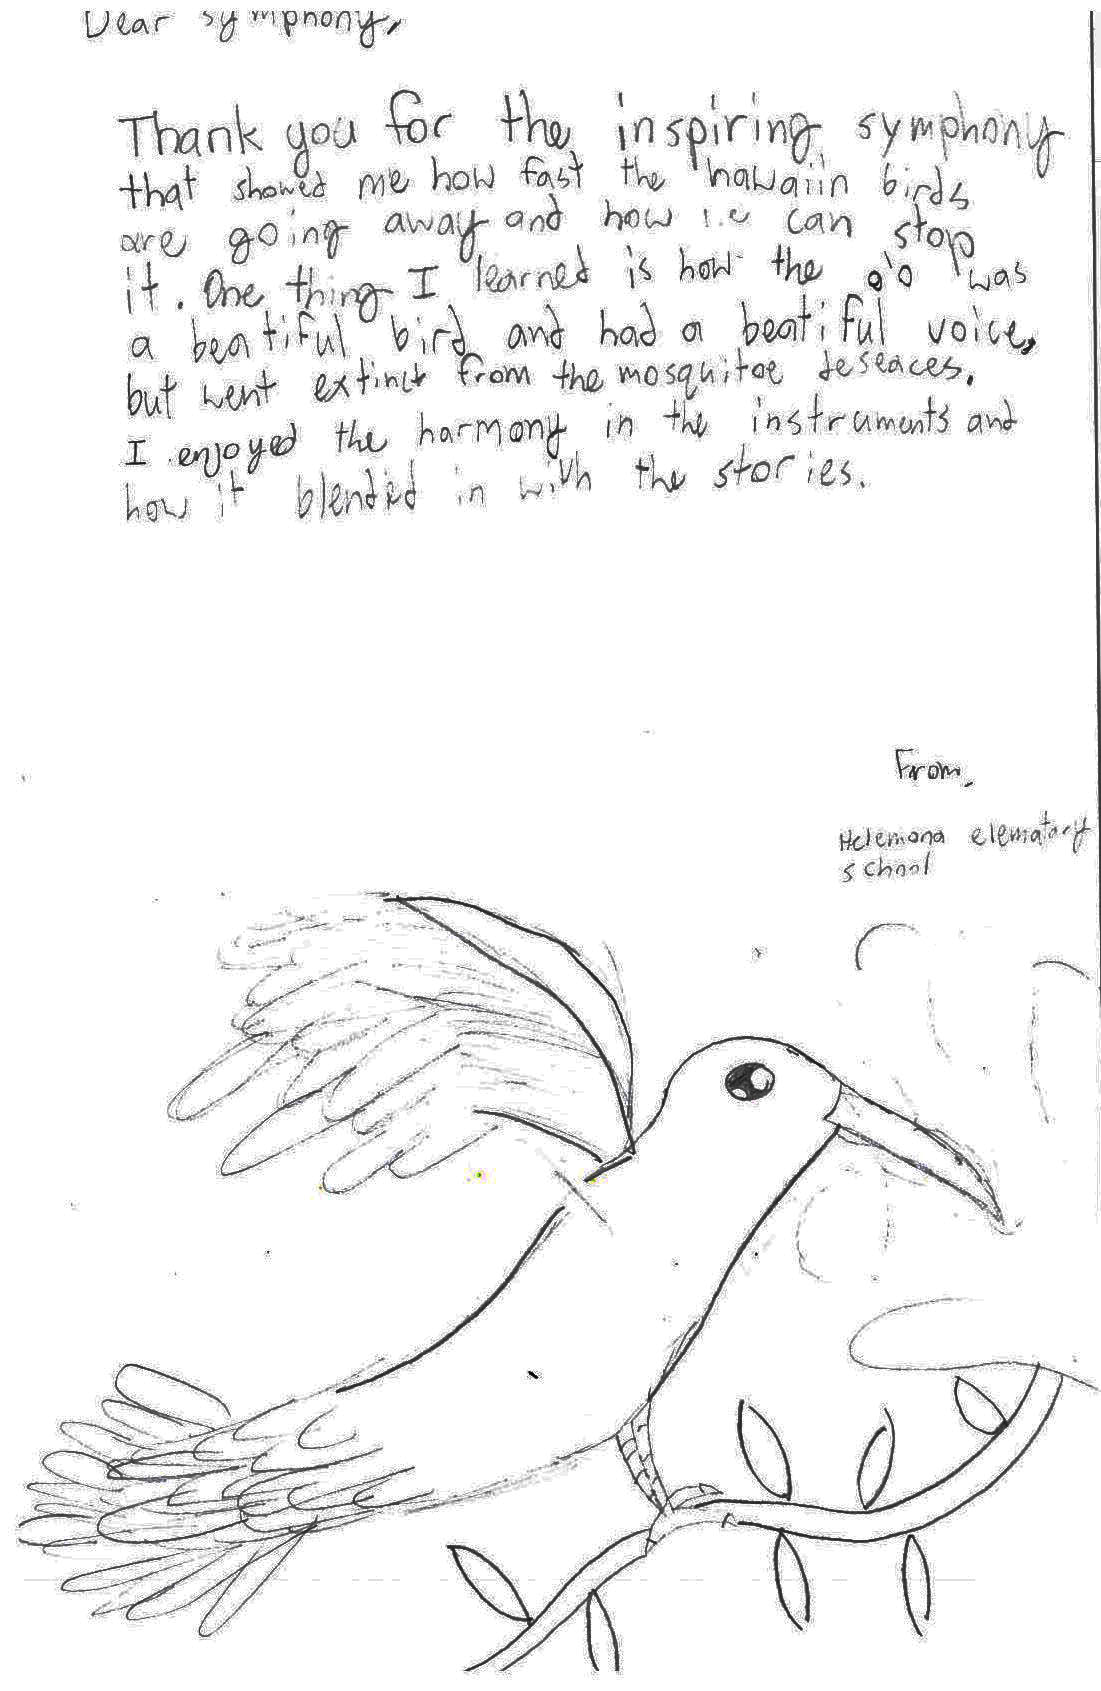 Dear symphony,
Thank you for the inspiring symphony
that showed me how fast the hawaiin birds
are going away and how can stop
it. One thing I learned is how the o'o was
a beatiful bird and had a beatiful voice,
but went extinct from the mosquitoe deseaces.
I enjoyed the harmony in the instruments and
how it blended in with the stories.
From,
Helemana elematary
school